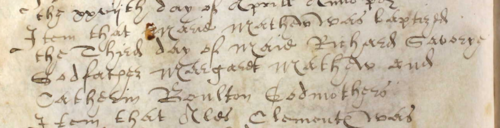 the xxvijth day of Aprill Anno
Item that Marie Mathew was baptized
the Third day of Maie Richard Savorye
Godfather Margaret Mathew and
Catherin Boulton Godmothers
Item that Ales Clemont was